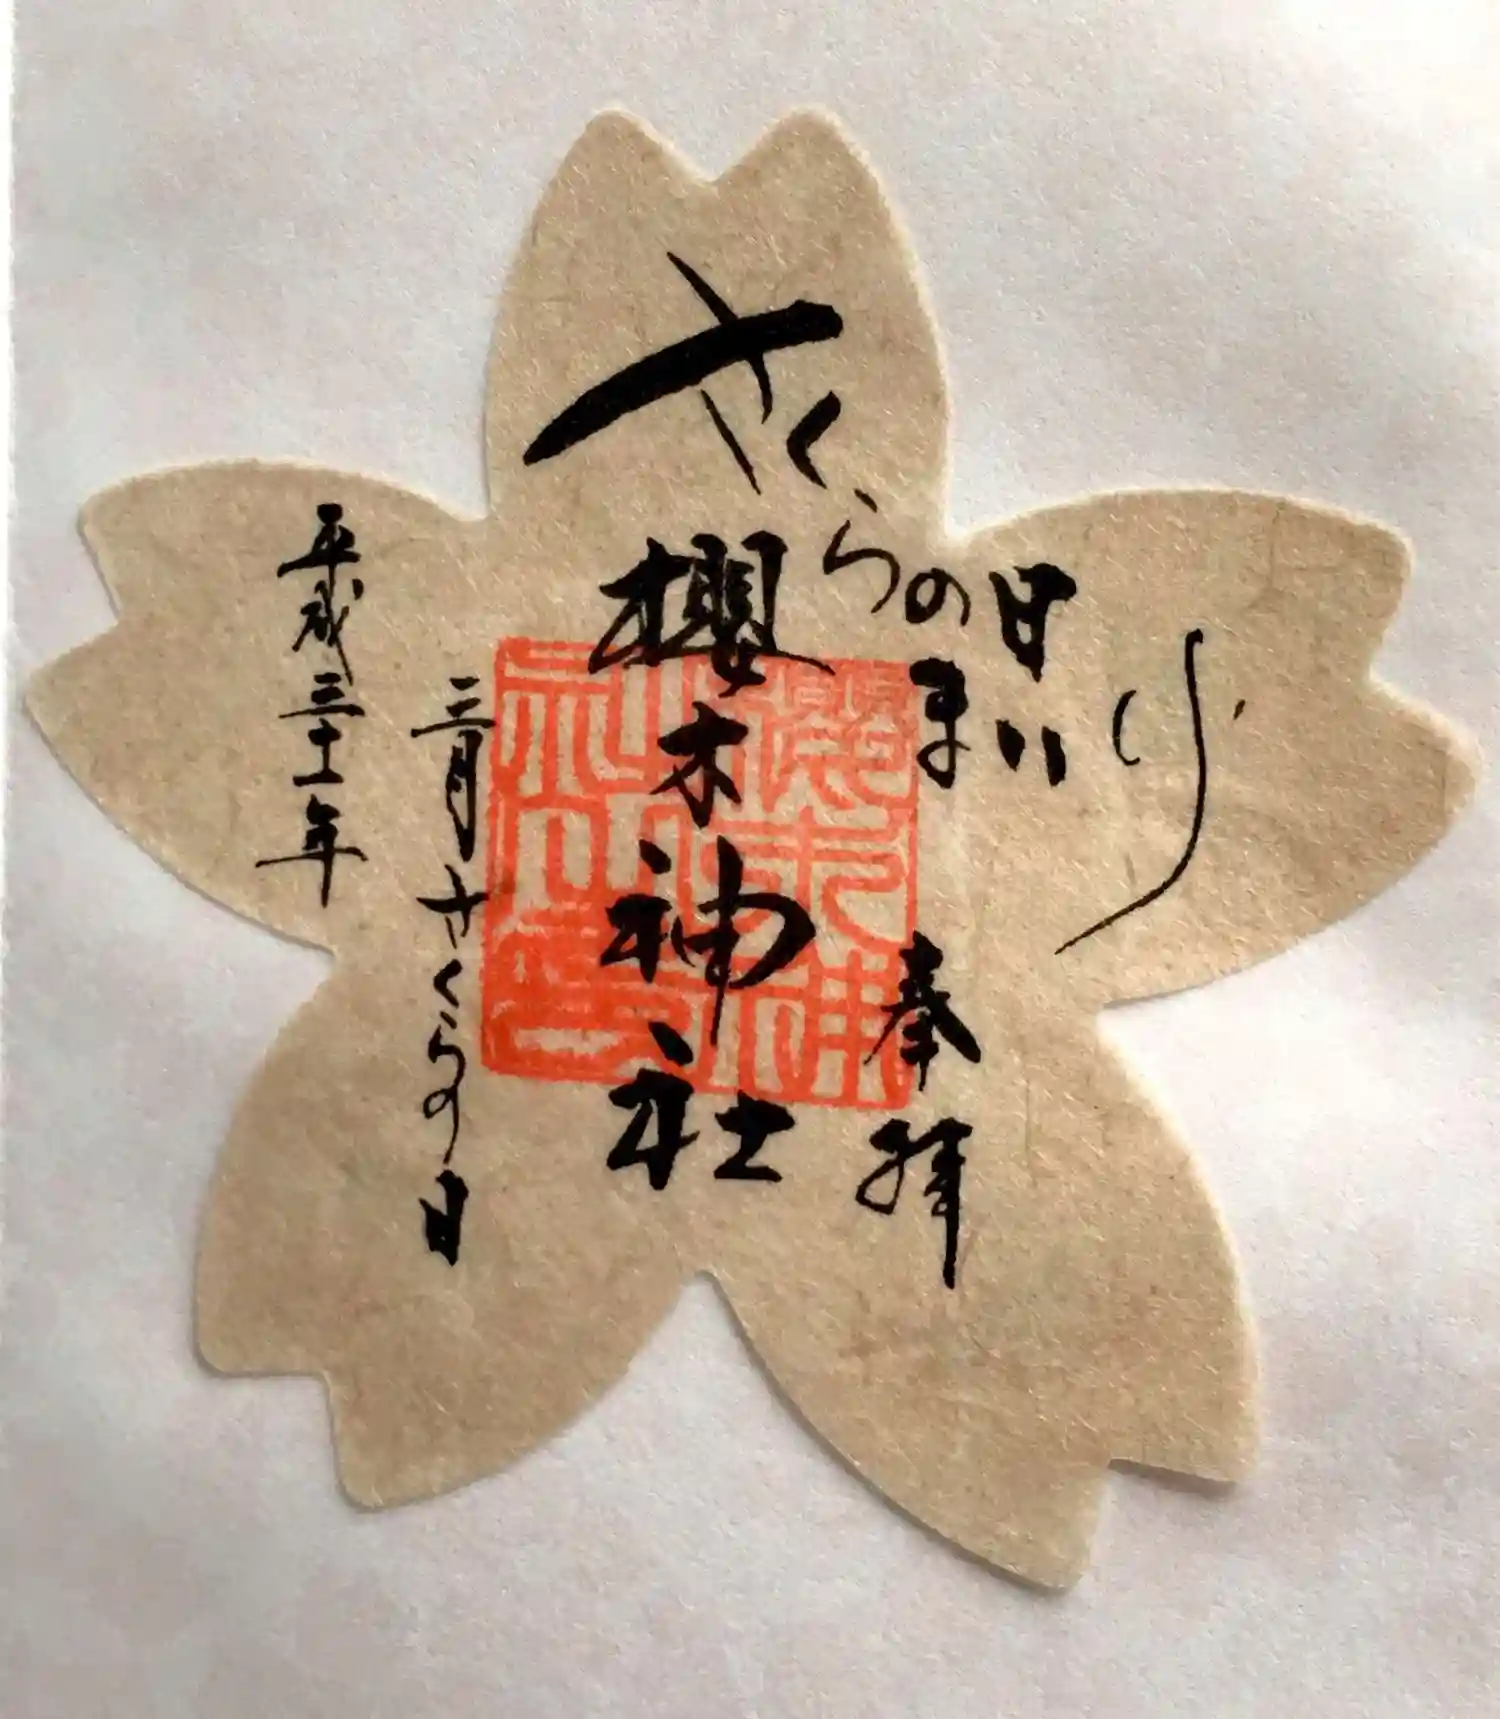 さくらの日まいり
奉拝
櫻木神社
櫻木神社之印
平成三十一年
三月さくらの日